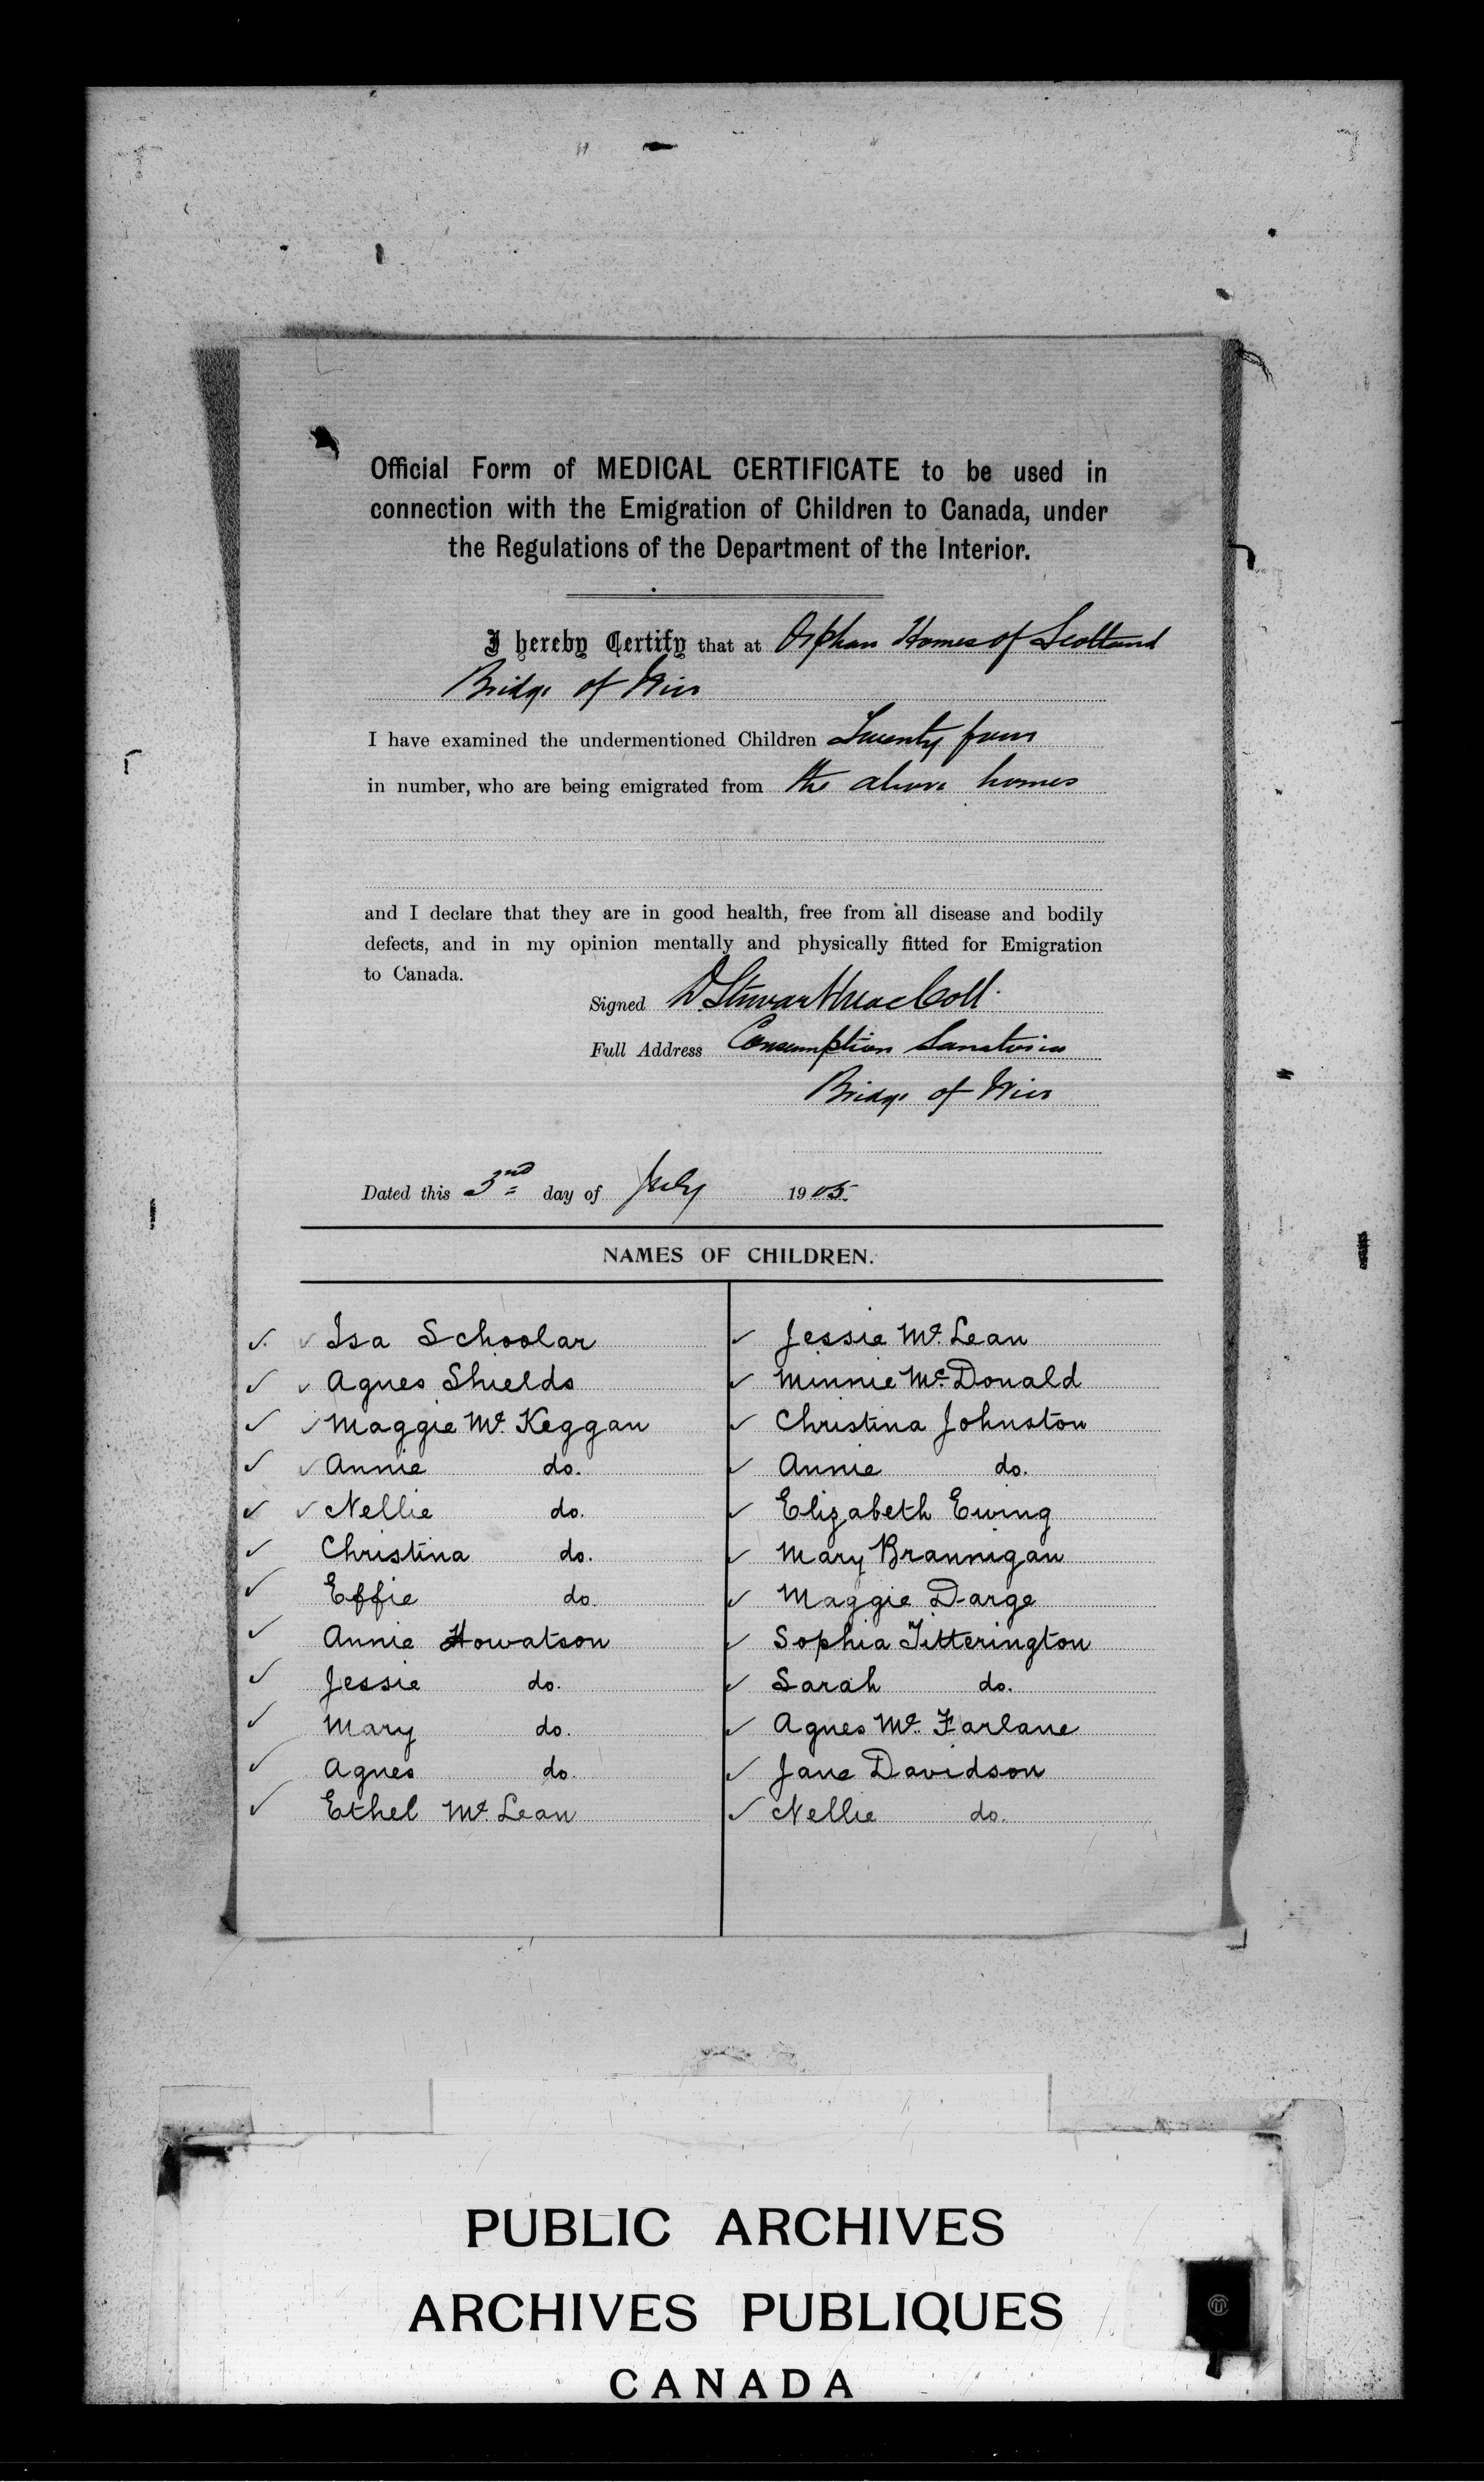 Official Form of MEDICAL CERTIFICATE to be used in
connection with the Emigration of Children to Canada, under
the Regulations of the Department of the Interior.
I hereby Certify that at Orphan Homes of Scotland
Bridge of Weir
I have examined the undermentioned Children Twenty four
in number, who are being emigrated from the above homes
and I declare that they are in good health, free from all disease and bodily
defects, and in my opinion mentally and physically fitted for Emigration
to Canada.
Signed D. Stewart MacColl.
Full Address Consumption Sanatoria
Bridge of Weir
Dated this 3nd day of July 1905.
NAMES OF CHILDREN.
✓. ✓ Isa Schoolar
✓ ✓ Agnes Shields
✓ ✓ Maggie Mc. Keggan
✓ ✓ Annie do.
✓ ✓ Nellie do.
✓ Christina do.
✓ Effie do.
✓ Annie Howatson
✓ Jessie do.
✓ Mary do.
✓ Agnes do.
✓ Ethel Mc. Lean
✓ Jessie Mc. Lean
✓ Minnie Mc. Donald
✓ Christina Johnston
✓ Annie do.
✓ Elizabeth Ewing
✓ Mary Brannigan
✓ Maggie Darge
✓ Sophia Titterington
✓ Sarah do.
✓ Agnes Mc. Farlane
✓ Jane Davidson
✓ Nellie do.
PUBLIC ARCHIVES
ARCHIVES PUBLIQUES
CANADA